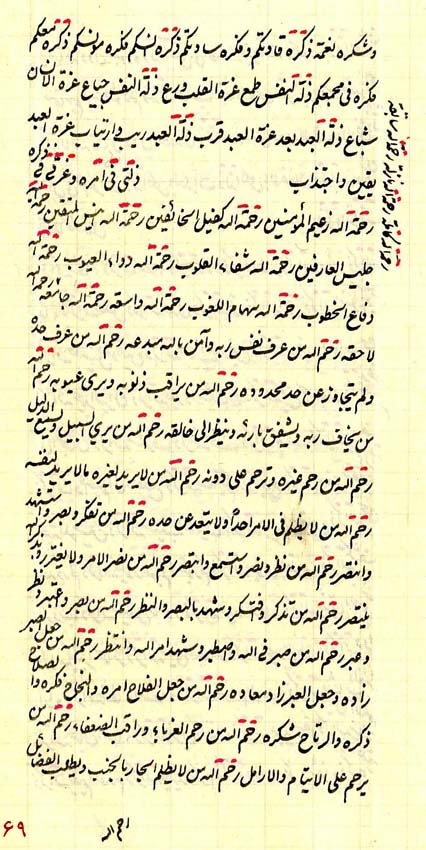 وشکره نعمة ذکره قادتکم وفکره ساداتکم ذکره لسنکم فکره مؤنسکم ذکره معکم
فکره فی مجمعکم ذلة النفس طمع عزة القلب ورع ذلة النفس جیاع عزة
شباع ذلة العبد بعد عزة العبد قرب ذلة العبد ریب وارتیاب عزة العبد
یقین واجتذاب ذلتی فی امره وعزتی فی ذکره
رحمة الله زعیم المؤمنین رحمة الله کفیل الخائفین رحمة الله انیس المتقین رحمة الله
جلیس العارفین رحمة الله شفاء القلوب رحمة الله دواء العیوب رحمة الله
دفاع الخطوب رحمة الله سهام اللغوب رحمة الله واسعة رحمة الله جامعة رحمة الله
لاحقة رحم الله من عرف نفس ربه وآمن بالله مبدعه رحم الله من عرف حده
ولم یتجاوز عن حد محدوده رحم الله من یراقب ذنوبه ویری عیوبه رحم الله
من یخاف ربه ویشفق بارئه وینظر الی خالقه رحم الله من یری السبیل ویسمع الدلیل
رحم الله من رحم غیره وترحم علی دونه رحم الله من لا یرید لغیره ما لا یرید لنفسه
رحم الله من لا یظلم فی الامر احدا ولا یتعد عن حده رحم الله من تفکر وبصر واستشهد
وانتصر رحم الله من نظر ونصر واستمع وابتصر رحم الله من بصر الامر ولا یغتر
یفتقر رحم الله من تذکر وافتکر وشهد بالبصر والنظر رحم الله من بصر واعتبر ونظر
وعبر رحم الله من صبر فی الله واصطبر وشهد امر الله وانتظر رحم الله من جعل الصبر
زاده وجعل العبر زاد معاده رحم الله من جعل الفلاح امره والنجاح فکره والصلاح
ذکره والرباح شکره رحم الله من رحم الغرباء وراقب الضعفاء رحم الله من
یرحم علی الایتام والارامل رحم الله من لا یظلم الجار بالجنب ویطلب الفضائل
رحم الله
رحمة الله سابقة
رحمة الله کاملة
٦٩